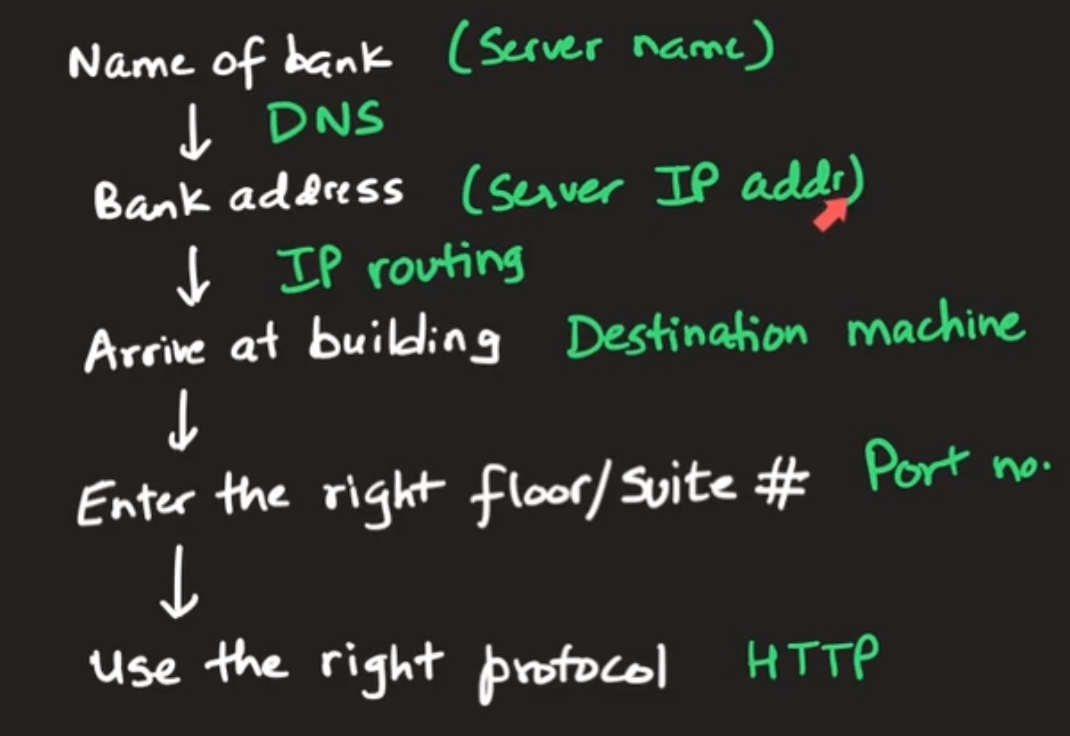 Name of bank (Server name)
↓ DNS
Bank address (Server IP addr)
↓ IP routing
Arrive at building Destination machine
↓
Enter the right floor/suite # Port no.
↓
Use the right protocol HTTP